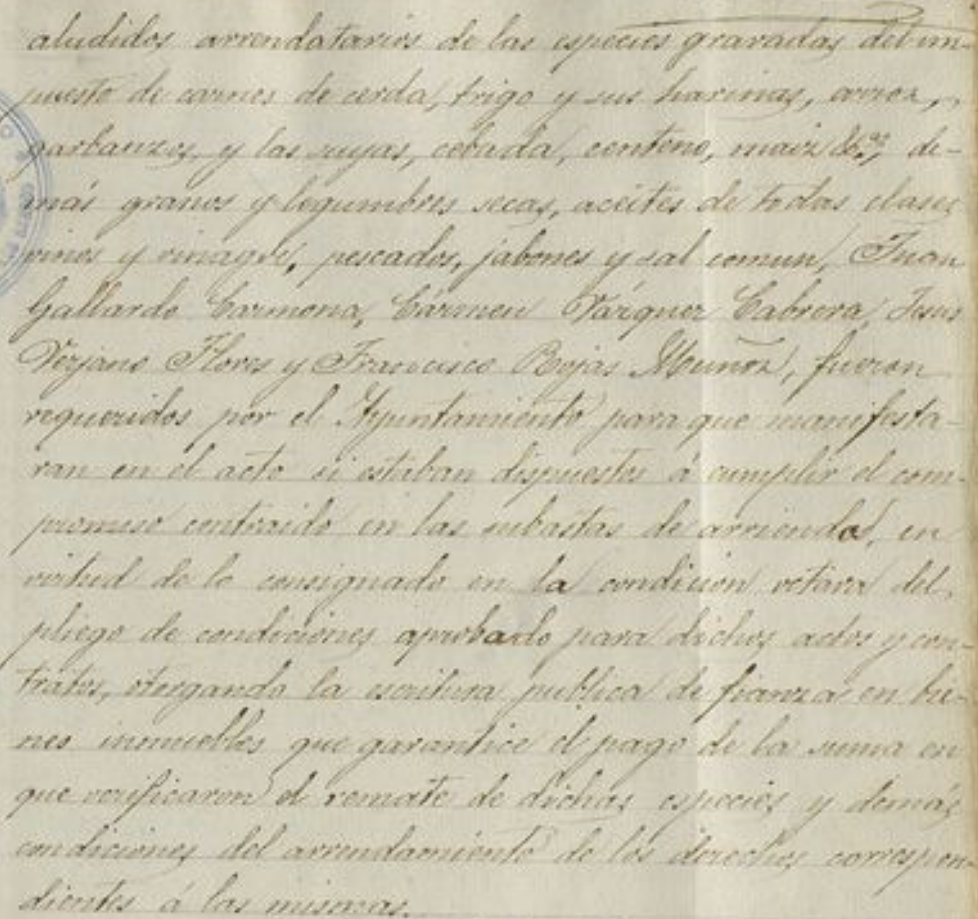 aludidos arrendatarios de las especies gravadas del im-
puesto de carnes de cerda, trigo y sus harinas, arroz,
garbanzos, y las suyas, cebada, centeno, maiz &ª, de-
más granos y legumbres secas, aceites de todas clases
vinos y vinagre, pescados, jabones y sal comun, Juan
Gallardo Carmona, Cármen Vázquez Cabrera, Jesus
Vejano Flores y Francisco Rojas Muñoz, fueron
requeridos por el Ayuntamiento para que manifesta-
ran en el acto si estaban dispuestos á cumplir el com-
promiso contraido en las subastas de arriendos, en
virtud de lo consignado en la condicion octava del
pliego de condiciones aprobado para dichos actos y con-
tratos, otorgando la escritura publica de fianza en bie-
nes inmuebles que garantice el pago de la suma en
que verificaron el remate de dichas especies y demás
condiciones del arrendamiento de los derechos correspon-
dientes á las mismas.